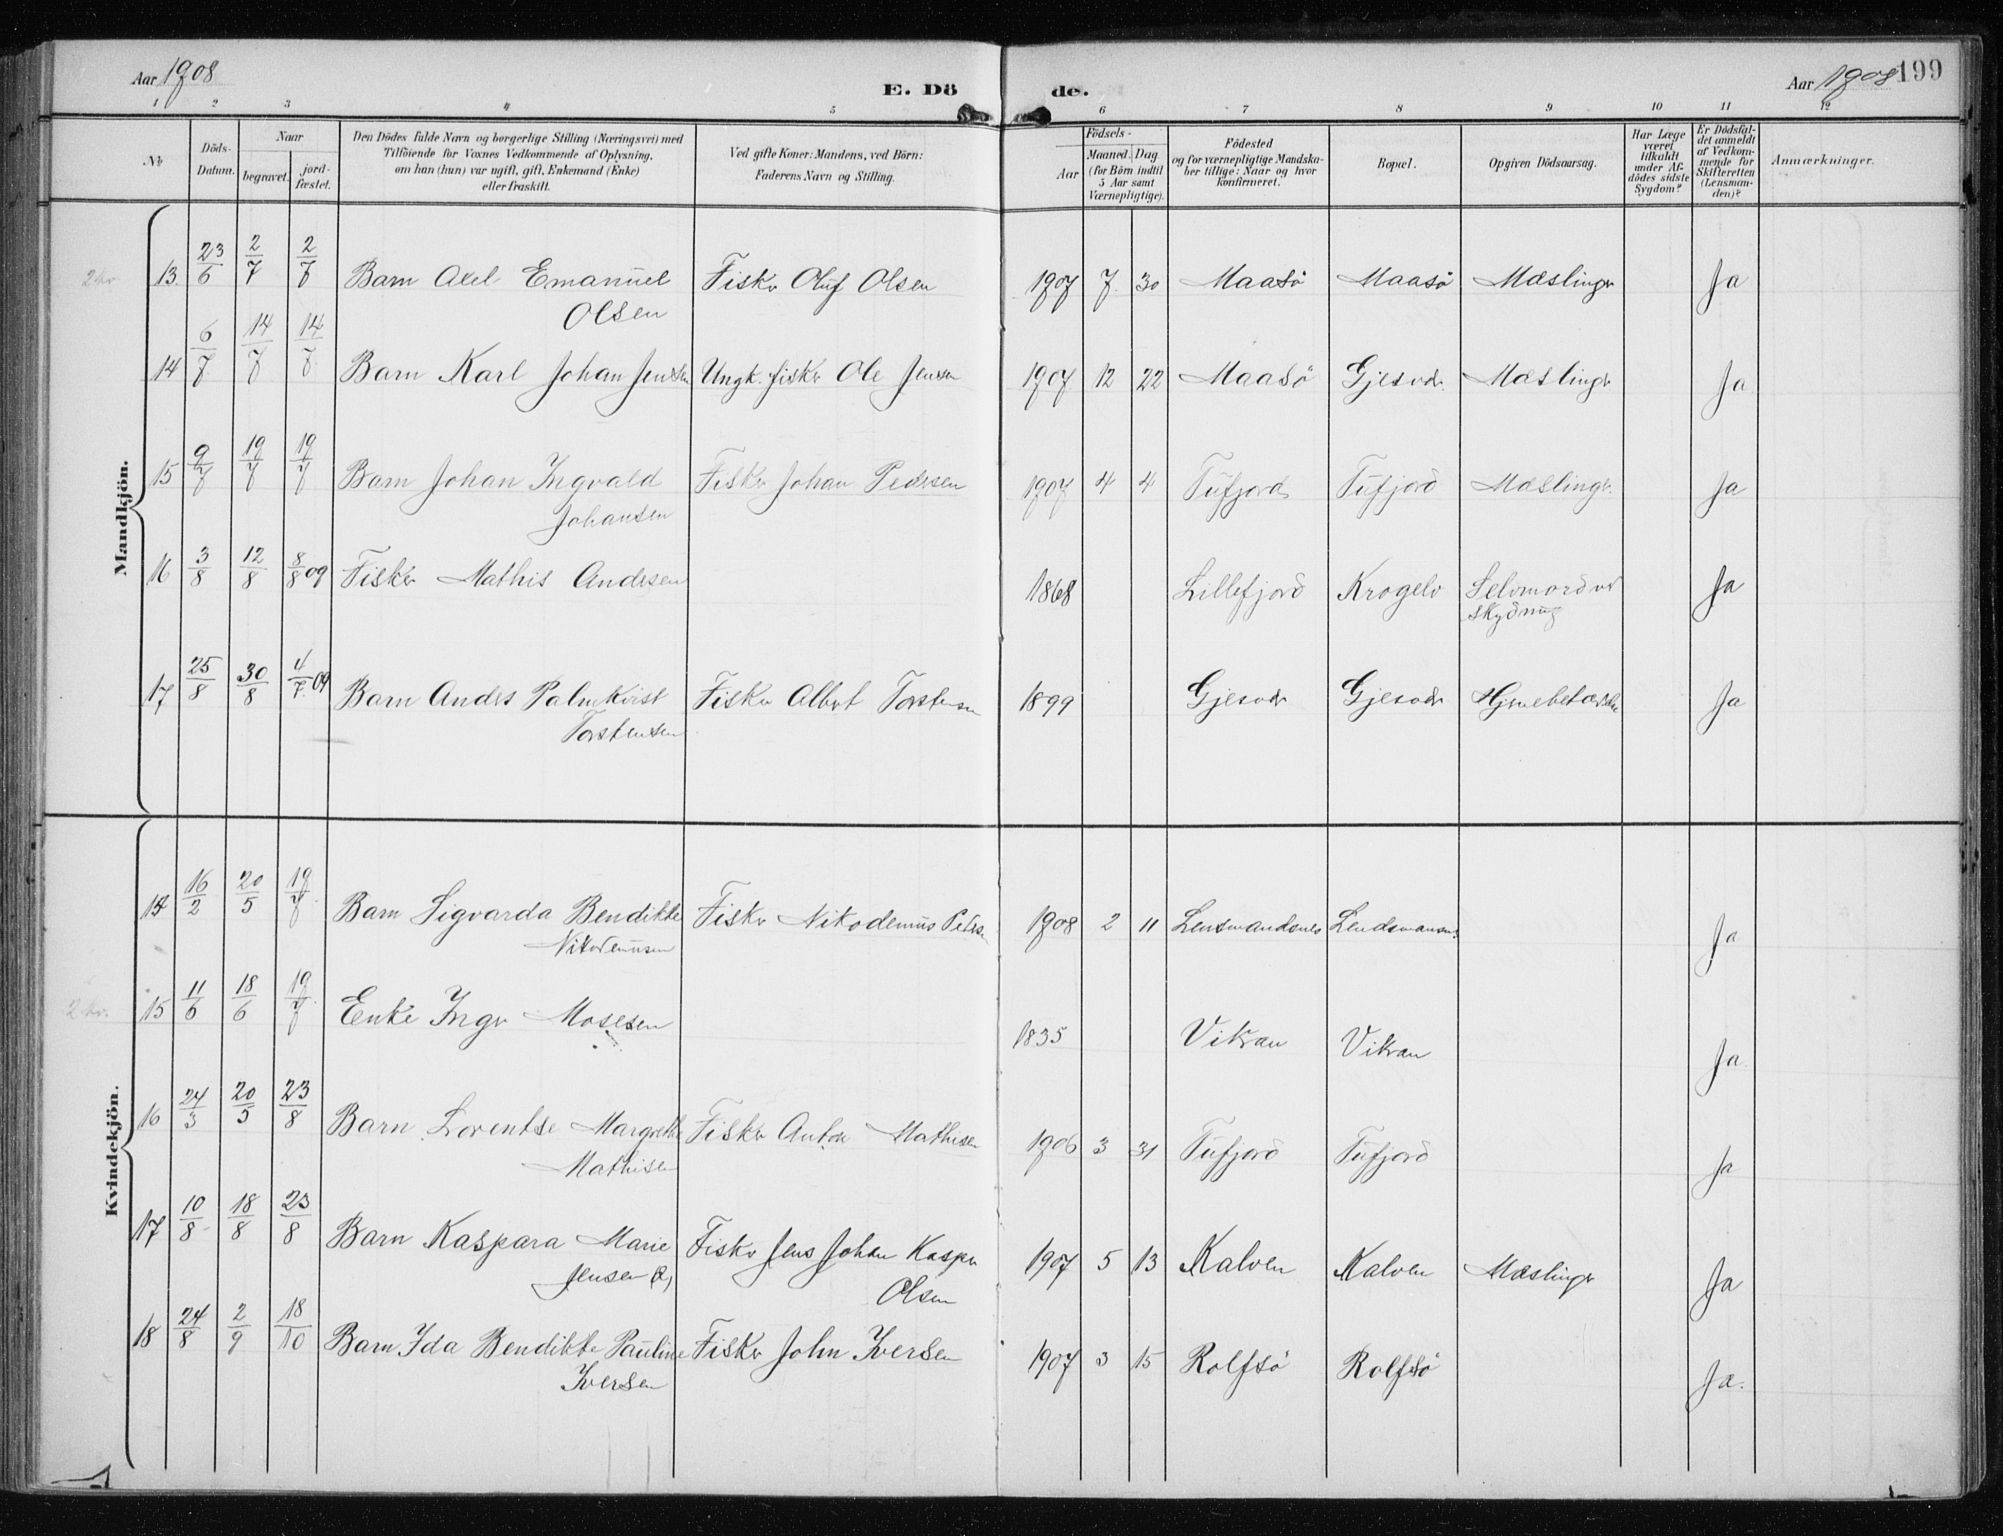 Aar 1908
E. Dö
de.
Aar 1908
199
1 2 3 4 5 6 7 8 9 10 11 12
No
Döds-
Datum.
Naar
begravet.
jord-
fæstet.
Den Dödes fulde Navn og borgerlige Stilling (Næringsvei) med
Tilföiende for Voxnes Vedkommende af Oplysning,
om han (hun) var ugift, gift, Enkemand (Enke)
eller fraskilt.
Ved gifte Koner: Mandens, ved Börn:
Faderens Navn og Stilling.
Födsels-
Aar
Maaned. Dag
(for Börn indtil
5 Aar samt
Værnepligtige).
Födested
og for værnepligtige Mandska-
ber tillige: Naar og hvor
konfirmeret.
Bopæl.
Opgiven Dödsaarsag.
Har Læge
været
tilkaldt
under Af-
dödes sidste
Sygdom?
Er Dödsfal-
det anmeldt
af Vedkom-
mende for
Skifteretten
(Lensman-
den)?
Anmærkninger.
Mandkjön.
2 kr
13 23/6 2/7 2/7 Barn Axel Emanuel Fisker Oluf Olsen 1907 7 30 Maasö Maasö Mæslinger Ja
Olsen
14 6/7 14/7 14/7 Barn Karl Johan Jensen Ungk. fisker Ole Jensen 1907 12 22 Maasö Gjesvær Mæslinger Ja
15 9/7 19/7 19/7 Barn Johan Ingvald Fisker Johan Pedersen 1907 4 4 Tufjord Tufjord Mæslinger. Ja
Johansen
16 3/8 12/8 8/8 09 Fisker Mathis Andersen 1868 Lillefjord Krogelv Selvmord ved Ja
skydning
17 25/8 30/8 4/7 09 Barn Anders Palmkvist Fisker Albert Torstensen 1899 Gjesvær Gjesvær Hjernebetændelse Ja
Torstensen
Kvindekjön.
14 16/2 20/5 19/7 Barn Sigvarda Bendikte Fisker Nikodemus Pedersen 1908 2 11 Lensmandsnes Lendsmansn. Ja
Nikodemusen
2 kr.
15 11/6 18/6 19/7 Enke Inger Mosesen 1835 Vikran Vikran Ja
16 24/3 20/5 23/8 Barn Lorentse Margrethe Fisker Anton Mathisen 1906 3 31 Tufjord Tufjord Ja
Mathisen
17 10/8 18/8 23/8 Barn Kaspara Marie Fisker Jens Johan Kasper 1907 5 13 Kalven Kalven Mæslinger Ja
Jensen
Olsen
18 24/8 2/9 18/10 Barn Ida Bendikte Pauline Fisker John Iversen 1907 3 15 Rolfsö Rolfsö Ja.
Iversen